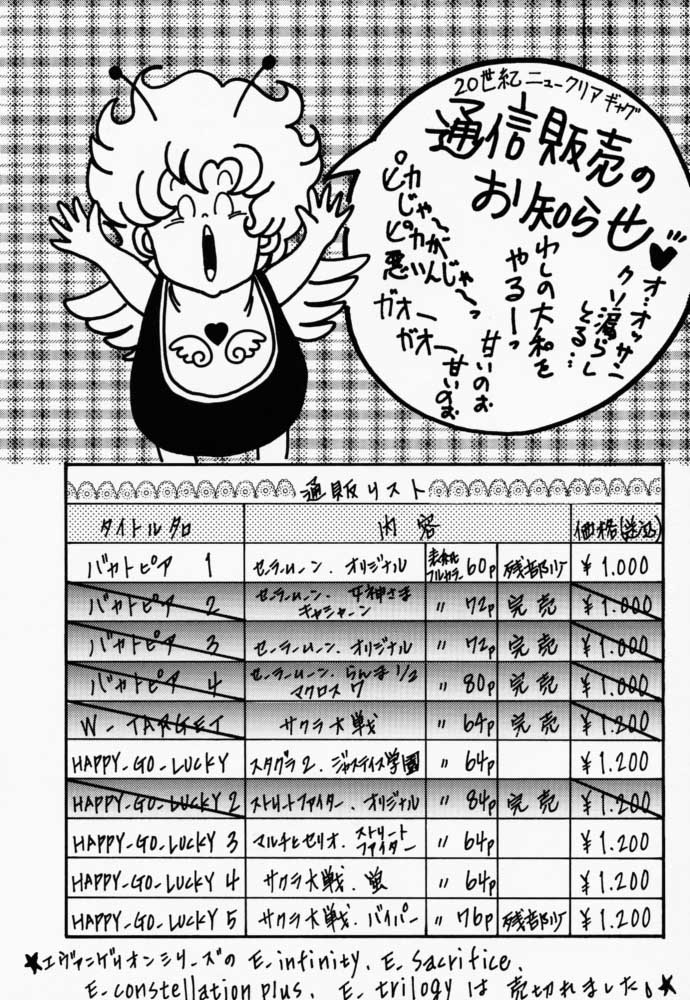 20世紀ニュークリアギャグ
通信販売の
お知らせ♥
オ…オッサン
クソ漏らし
とる…
わしの大和を
やるーっ
甘いのお
甘いのお
ピカ
じゃ〜
ピカが
悪いんじゃ〜っ
ガオー
ガオー
通販リスト
タイトル名 内容 価格(送込)
バカトピア 1 セーラームーン.オリジナル 表紙フルカラー 60p 残部少 ¥1.000
バカトピア 2 セーラームーン.女神さま キャシャーン 〃 72p 完売 ¥1.000
バカトピア 3 セーラームーン.オリジナル 〃 72p 完売 ¥1.000
バカトピア 4 セーラームーン.らんま1/2 マクロス7 〃 80p 完売 ¥1.000
W-TARGET サクラ大戦 〃 64p 完売 ¥1.200
HAPPY-GO-LUCKY スタグラ2.ジャスティス学園 〃 64p ¥1.200
HAPPY-GO-LUCKY 2 ストリートファイター.オリジナル 〃 84p 完売 ¥1.200
HAPPY-GO-LUCKY 3 マルチとセリオ.ストリートファイター 〃 64p ¥1.200
HAPPY-GO-LUCKY 4 サクラ大戦.蛍 〃 64p ¥1.200
HAPPY-GO-LUCKY 5 サクラ大戦.バイパー 〃 76p 残部少 ¥1.200
★エヴァンゲリオンシリーズの E-infinity. E-Sacrifice.
E-constellation plus. E-trilogy は 売切れました。★